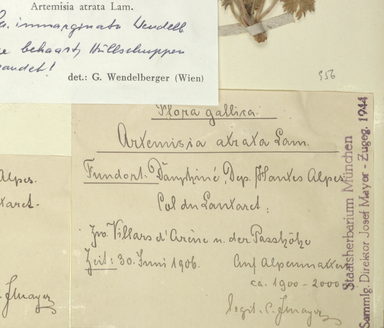 Artemisia atrata Lam.
immarginata Wendelb
behaart, Hüllschuppen
det.: G. Wendelberger (Wien)
556
Flora gallica.
Artemisia atrata Lam.
Fundort: Dauphiné, Dep. Hautes Alpes
Col du Lautaret:
Zw. Villars d'Arène u. der Passhöhe
Zeit: 30. Juni 1906. Auf Alpenmatten
ca. 1900-2000
legit.
Staatsherbarium München
Sammlg. Direktor Josef Mayer - Zugeg. 1944
Alpes.
taret.